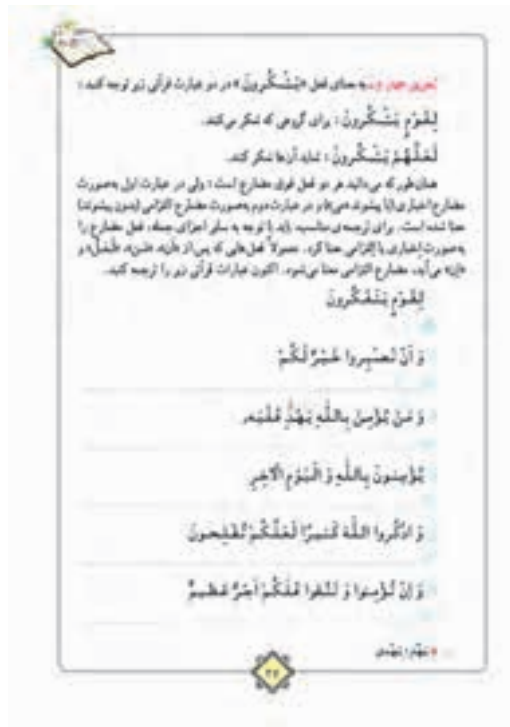 به معنای فعل «یَشْکُرونَ» در دو عبارت قرآنی زیر توجه کنید :
لِقَوْمٍ یَشْکُرونَ : برای گروهی که شکر می‌کنند.
لَعَلَّهُمْ یَشْکُرونَ : شاید آن‌ها شکر کنند.
همان‌طور که می‌دانید هر دو فعل فوق مضارع است ؛ ولی در عبارت اول به‌صورت
مضارع اخباری (با پیشوند «می») و در عبارت دوم به‌صورت مضارع التزامی (بدون پیشوند)
معنا شده است. برای ترجمه‌ی مناسب، باید با توجه به سایر اجزای جمله، فعل مضارع را
به‌صورت اخباری یا التزامی معنا کرد. معمولاً فعل‌هایی که پس از «أن»، «مَن»، «لَعَلَّ» و
«إن» می‌آید، مضارع التزامی معنا می‌شود. اکنون عبارات قرآنی زیر را ترجمه کنید.
لِقَوْمٍ یَتَفَکَّرونَ
وَ أَنْ تَصْبِروا خَیْرٌ لَکُمْ
وَ مَنْ یُؤْمِنْ بِاللّٰهِ یَهْدِ قَلْبَهُ
یُؤْمِنونَ بِاللّٰهِ وَ الْیَوْمِ الْآخِرِ
وَ اذْکُروا اللّٰهَ کَثیرًا لَعَلَّکُمْ تُفْلِحونَ
وَ إِنْ تُؤْمِنوا وَ تَتَّقوا فَلَکُمْ أَجْرٌ عَظیمٌ
یَهْدِ : یَهْدی